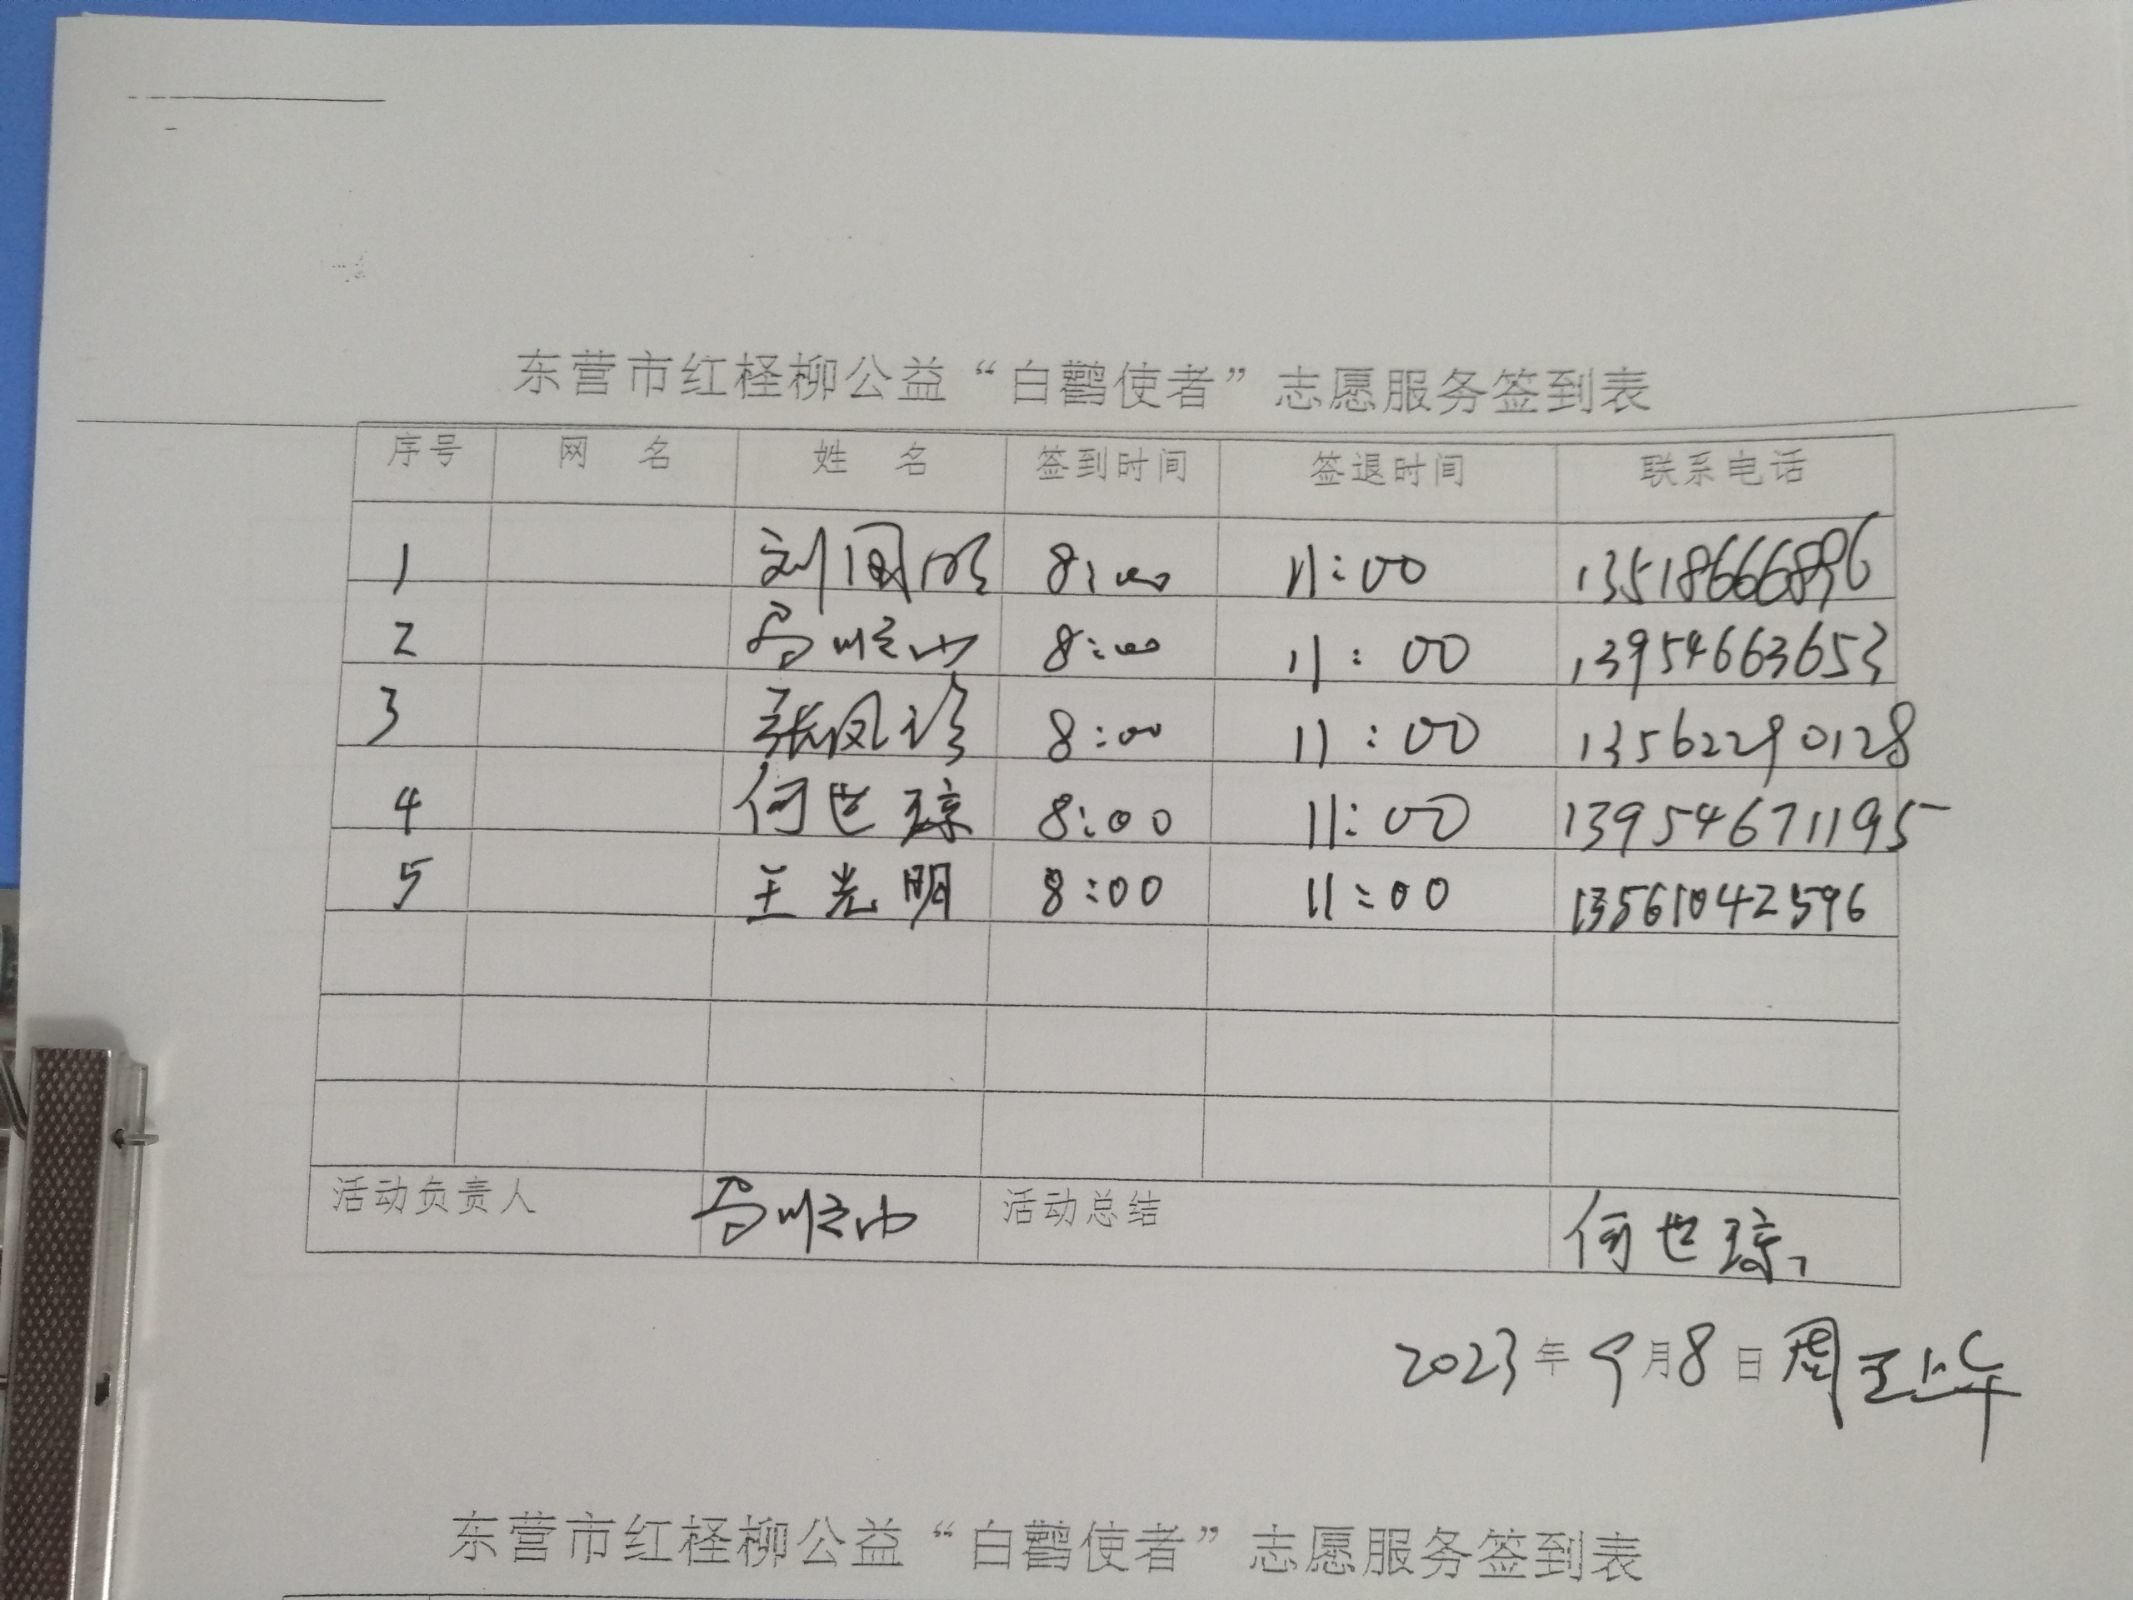 东营市红柽柳公益“白鹳使者”志愿服务签到表
序号 网 名 姓 名 签到时间 签退时间 联系电话
1 刘 8:00 11:00 13518666896
2 8:00 11:00 13954663653
3 张凤珍 8:00 11:00 13562290128
4 何世琼 8:00 11:00 13954671195
5 王光明 8:00 11:00 13561042596
活动负责人 活动总结 何世琼
2023年9月8日周五上午
东营市红柽柳公益“白鹳使者”志愿服务签到表